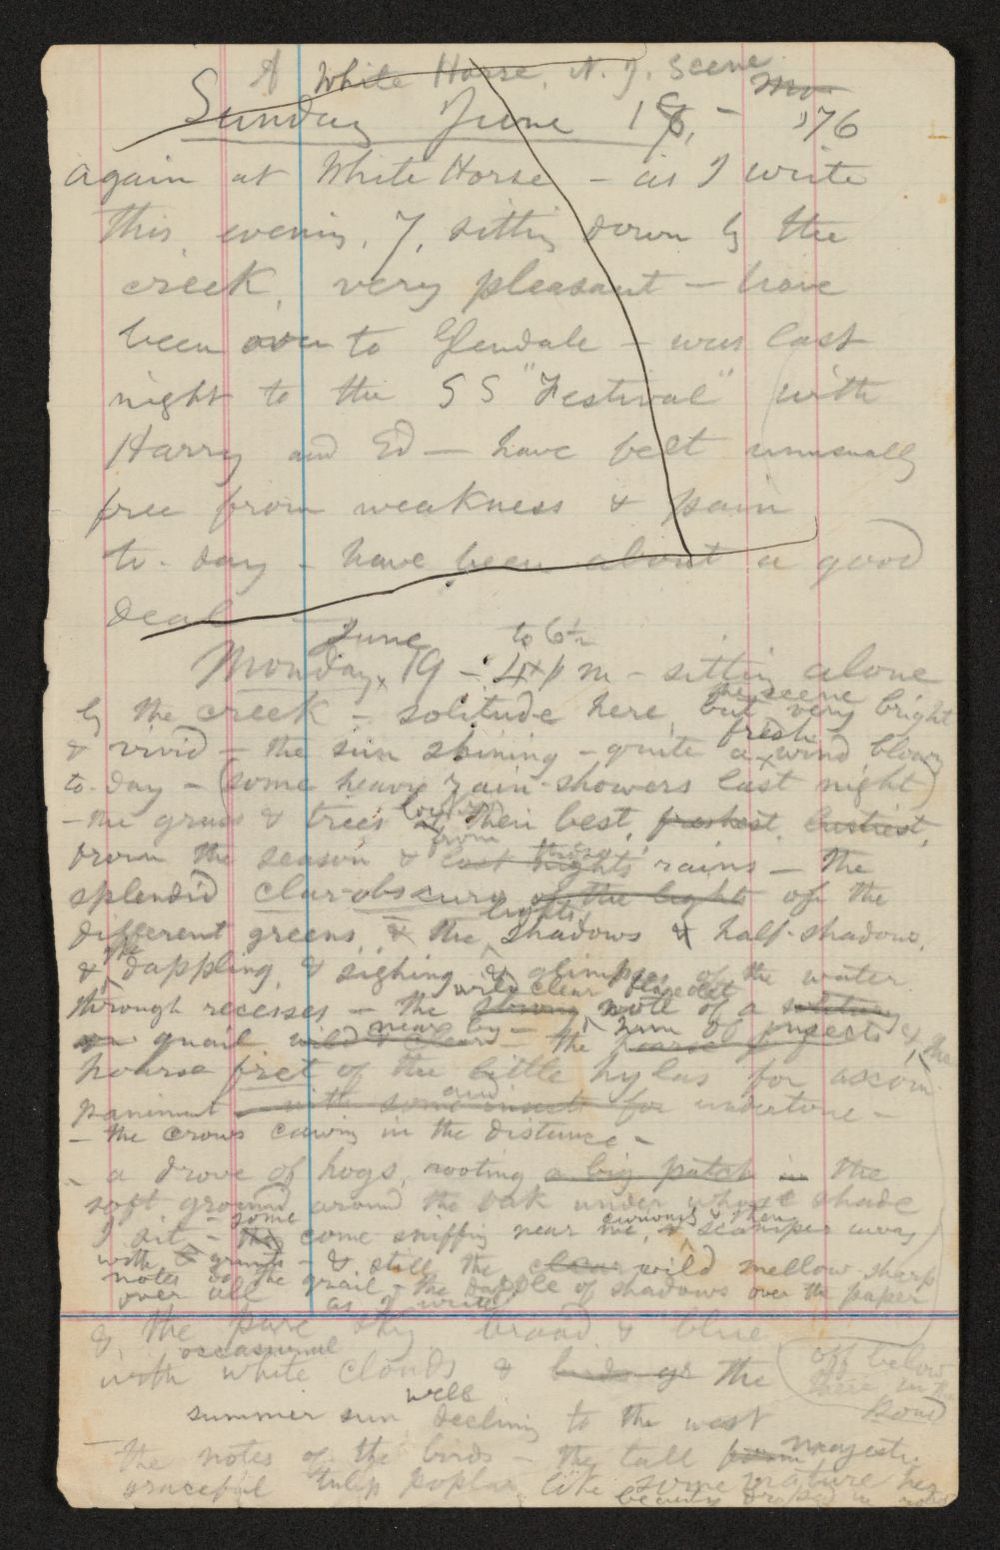 A White Horse, N. J. Scene
Sunday June 18, - '76
again at White Horse - as I write
this evening, 7, sitting down by the
creek, very pleasant - have
been over to Glendale - was last
night to the S S "Festival" with
Harry and Ed - have felt unusually
free from weakness & pain
to-day - have been about a good
deal
June to 6½
Monday 19 - 4 p m - sitting alone
the scene
by the creek - solitude here, but very bright
fresh
& vivid - the sun shining - quite a wind blowing
to-day - (some heavy rain-showers last night)
- the grass & trees looking their best, freshest, lustiest,
from these
from the season & last night's rains - the
splendid clar-obscuro of the lights of the
lights
different greens, & the shadows & half-shadows,
the
& dappling, & sighing & glimpses of the water
wild clear flageolet
through recesses - the strong note of a solitary
near by
quail wild & clear - the hum of insects & the
hoarse fret of the little hylas for accom-
and
paniment with some insects for undertone -
- the crows cawing in the distance -
- a drove of hogs, rooting a big patch in the
soft ground around the oak under whose shade
some
I sit, - they come sniffing near me, & then scamper away
with grunts - & still the clear wild mellow sharp
notes of the quail - the dapple of shadows over the paper
over all as I write
& the pure sky broad & blue
occasional
with white clouds & the
off below
there in the
pond
well
summer sun decling to the west
- the notes of the birds - the tall majestic
graceful tulip poplar like some
beauty draped in